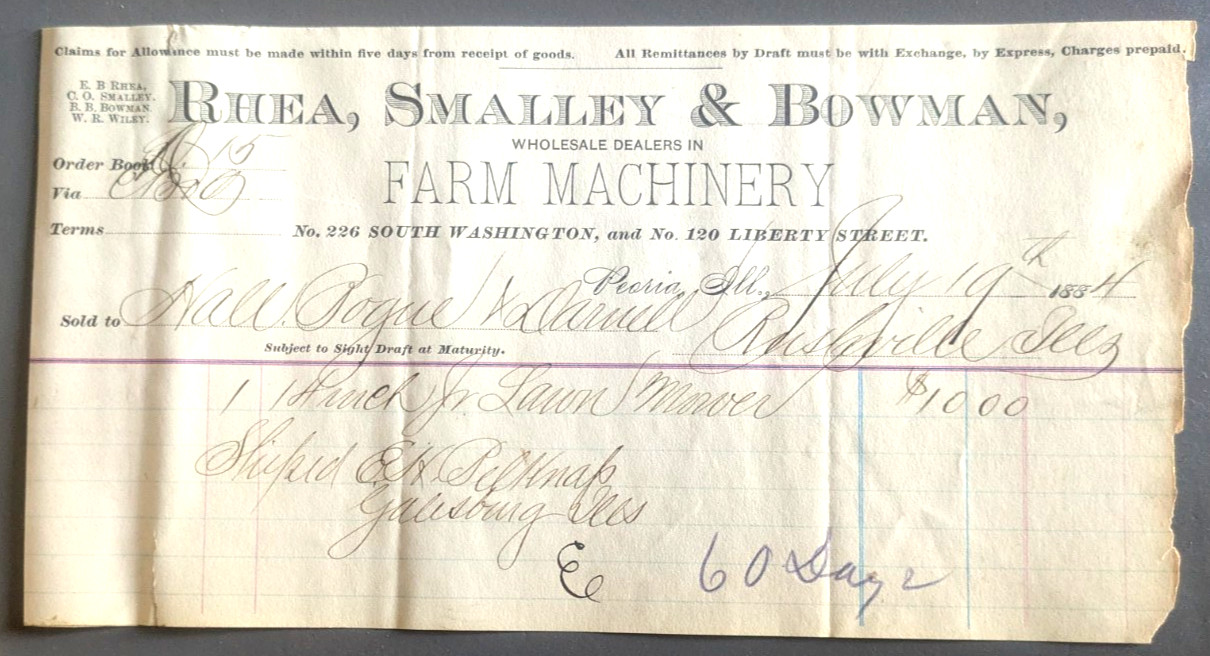 Claims for Allowance must be made within five days from receipt of goods. All Remittances by Draft must be with Exchange, by Express, Charges prepaid.
E. B RHEA,
C. O. SMALLEY.
B. B. BOWMAN.
W. R. WILEY.
RHEA, SMALLEY & BOWMAN,
WHOLESALE DEALERS IN
FARM MACHINERY
Order Book 15
Via
Terms
No. 226 SOUTH WASHINGTON, and No. 120 LIBERTY STREET.
Peoria, Ill., July 19th 1884
Sold to Hall. Bogue & Darnell Rushville Ills
Subject to Sight Draft at Maturity.
1 14 inch Jr. Lawn Mower $10 00
Shiped E. H.
Galesburg Ills
60 Days